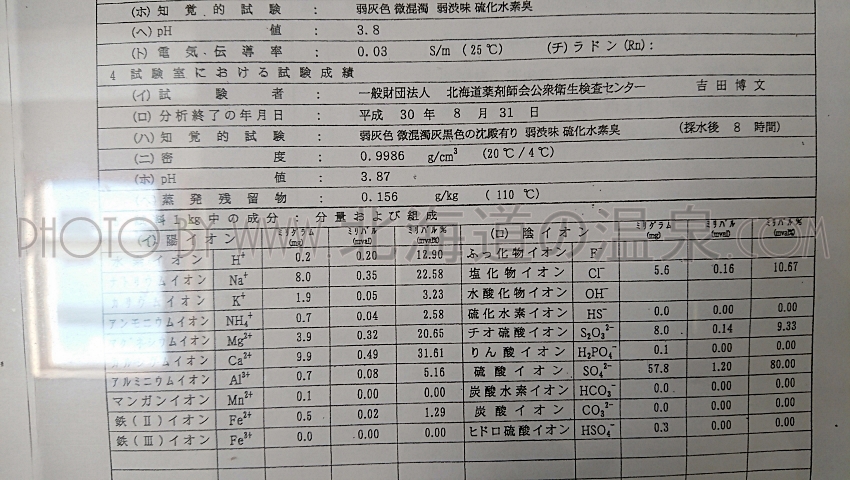 (ホ) 知覚的試験 : 弱灰色 微混濁 弱渋味 硫化水素臭
(ヘ) pH 値 : 3.8
(ト) 電気伝導率 : 0.03 S/m (25℃) (チ) ラドン(Rn):
4 試験室における試験成績
(イ) 試験者 : 一般財団法人 北海道薬剤師会公衆衛生検査センター 吉田博文
(ロ) 分析終了の年月日 : 平成 30年 8月 31日
(ハ) 知覚的試験 : 弱灰色 微混濁灰黒色の沈殿有り 弱渋味 硫化水素臭 (採水後 8 時間)
(ニ) 密度 : 0.9986 g/cm³ (20℃/4℃)
(ホ) pH 値 : 3.87
蒸発残留物 : 0.156 g/kg (110℃)
1kg中の成分 : 分量および組成
PHOTO BY www.北海道の温泉.com
(イ) 陽イオン ミリグラム(mg) ミリバル(mval) ミリバル%(mval%) (ロ) 陰イオン ミリグラム(mg) ミリバル(mval) ミリバル%(mval%)
イオン H⁺ 0.2 0.20 12.90 ふっ化物イオン F⁻
ナトリウムイオン Na⁺ 8.0 0.35 22.58 塩化物イオン Cl⁻ 5.6 0.16 10.67
カリウムイオン K⁺ 1.9 0.05 3.23 水酸化物イオン OH⁻
アンモニウムイオン NH₄⁺ 0.7 0.04 2.58 硫化水素イオン HS⁻ 0.0 0.00 0.00
マグネシウムイオン Mg²⁺ 3.9 0.32 20.65 チオ硫酸イオン S₂O₃²⁻ 8.0 0.14 9.33
カルシウムイオン Ca²⁺ 9.9 0.49 31.61 りん酸イオン H₂PO₄⁻ 0.1 0.00 0.00
アルミニウムイオン Al³⁺ 0.7 0.08 5.16 硫酸イオン SO₄²⁻ 57.8 1.20 80.00
マンガンイオン Mn²⁺ 0.1 0.00 0.00 炭酸水素イオン HCO₃⁻ 0.0 0.00 0.00
鉄(Ⅱ)イオン Fe²⁺ 0.5 0.02 1.29 炭酸イオン CO₃²⁻ 0.0 0.00 0.00
鉄(Ⅲ)イオン Fe³⁺ 0.0 0.00 0.00 ヒドロ硫酸イオン HSO₄⁻ 0.3 0.00 0.00